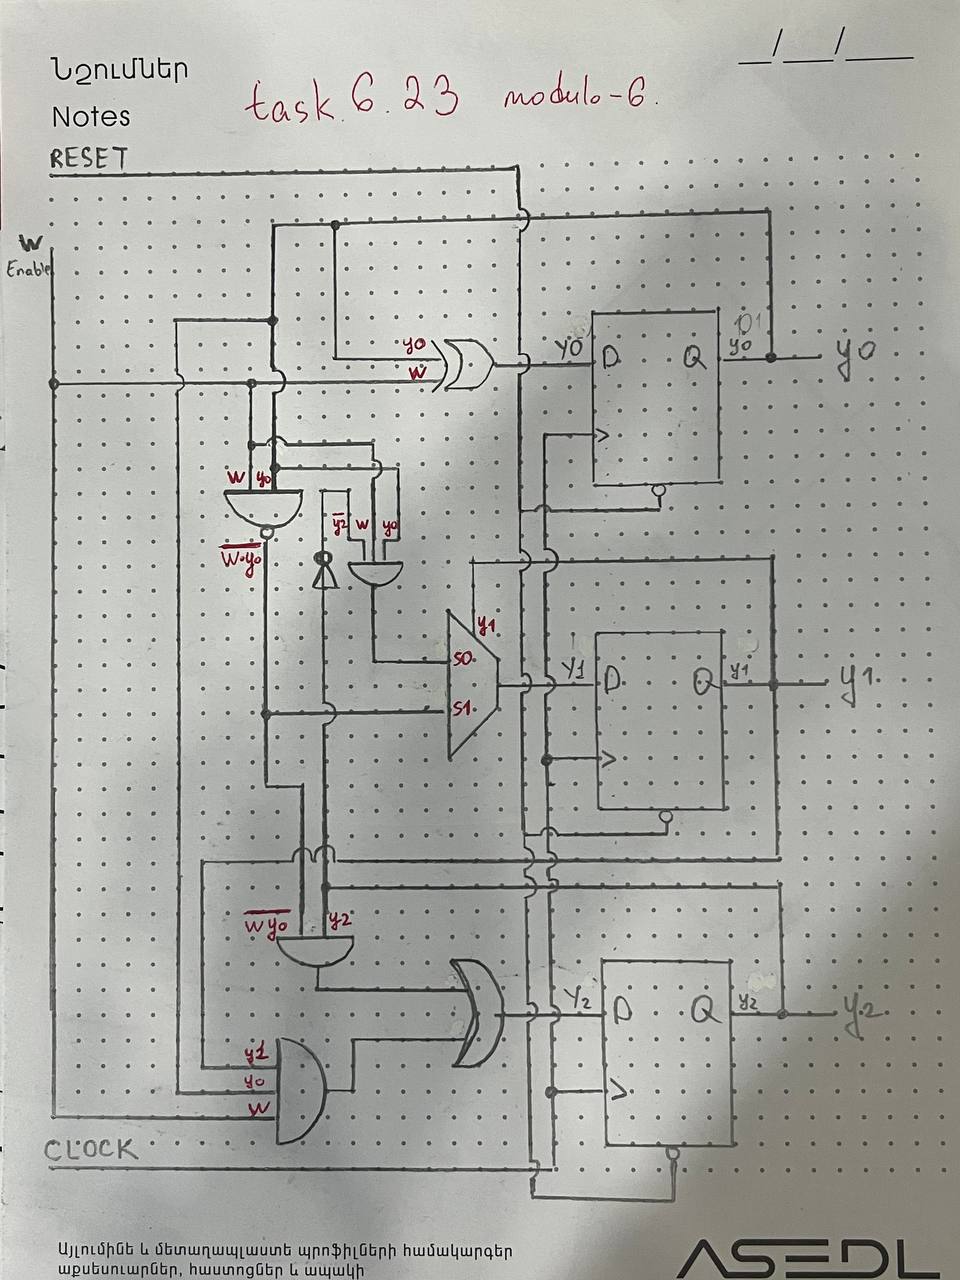 Նշումներ
Notes
__/__/____
task 6.23 modulo-6.
RESET
W
Enable
y0
W
Y0
D
Q
y0
y0
W y0
W·y0
y2 W y0
y1
S0
S1
Y1
D
Q
y1
y1
Wy0
y2
Y2
D
Q
y2
y2
y1
y0
W
CLOCK
Այլումինե և մետաղապլաստե պրոֆիլների համակարգեր
աքսեսուարներ, հաստոցներ և ապակի
ASEDL